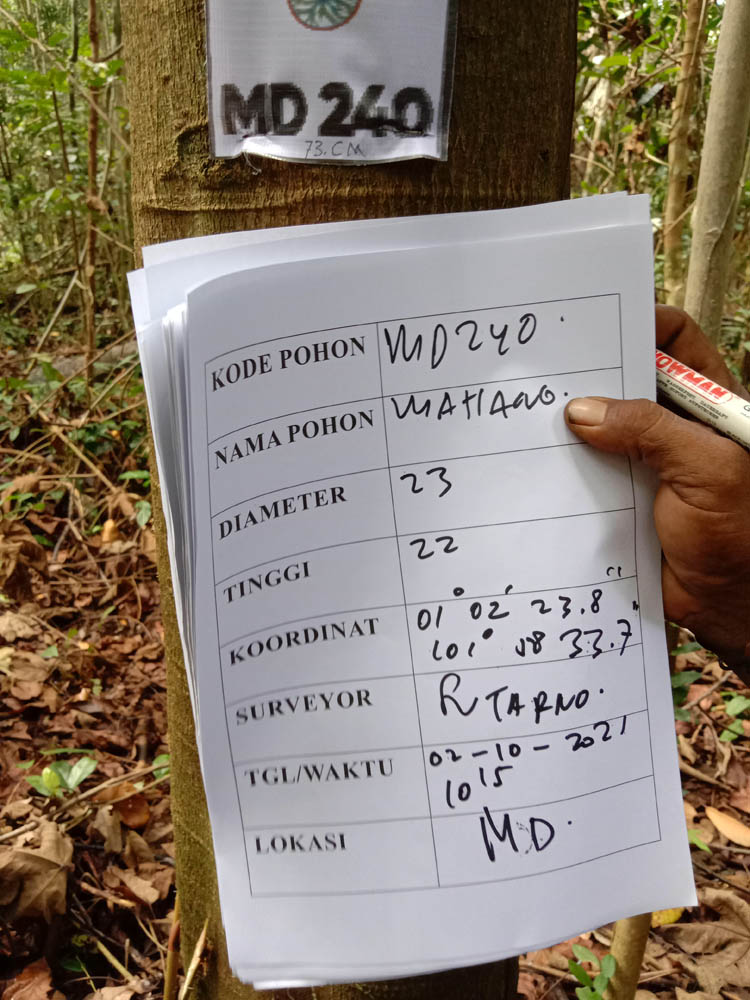 MD 240
73.CM
KODE POHON MD240.
NAMA POHON MAHAGO.
DIAMETER 23
TINGGI 22
KOORDINAT 01° 02' 23.8"
101° 58 33.7"
SURVEYOR SUTARNO.
TGL/WAKTU 02-10-2021
10 15
LOKASI MD.
SNOWMAN